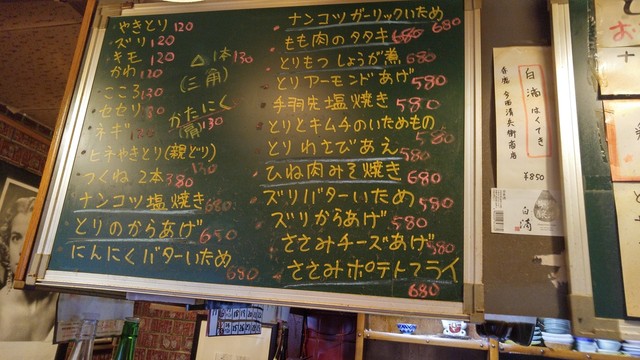 やきとり 120
ズリ 120
キモ 120
かわ 120
こころ 130
セセリ
ネギ
ヒネやきとり(親どり)
つくね 2本 380
ナンコツ塩焼き 680
とりのからあげ 650
にんにくバターいため 680
△ 1本 130
(三角)
かたにく
(肩) 130
ナンコツガーリックいため 680
もも肉のタタキ 680
とりもつしょうが煮 680
とりアーモンドあげ 580
手羽先塩焼き 580
とりとキムチのいためもの 580
とりわさびあえ 580
ひね肉みそ焼き 680
ズリバターいため 580
ズリからあげ 580
ささみチーズあげ 580
ささみポテトフライ 680
白滴 はくてき
¥850
白滴